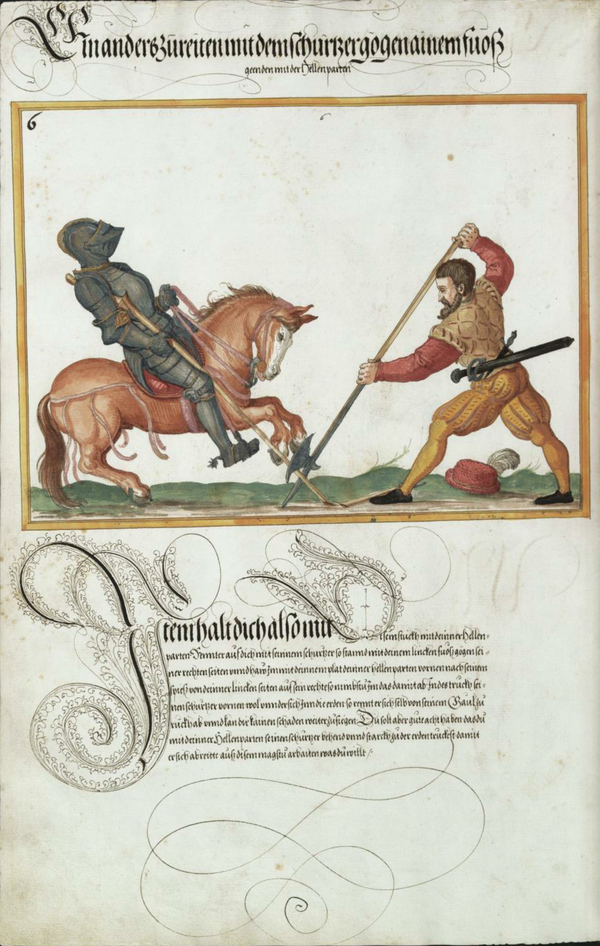 Ein anders zůreiten mit dem schürtzer gögen ainem fuoß
geenden mit der Hellenparten
6
Item halt dich also mit disem stuckh mit deinner Hellen-
parten Rennt er auf dich mit seinnem schurtzer so stannd mit deinem lincken fuoß gegen sei-
ner rechten seiten vnnd haw Im mit deinnem plat deinner hellenparten vornen nach seinem
spies von deinner lincken seiten auf sein rechte so nimbstu Im das damit ab Indes truckh sei-
nen schurtzer vornen wol vnnder sich Im die erden so rennt er sich selb von seinem Gaul zu
ruckh ab vnnd kan dir kainen schaden weiter zufiegen. Du solt aber gut acht haben das du
mit deinner Hellenparten seinen schurtzer behend vnnd starckh zu der erden truckhst damit
er sich ab reitt auß disem magstu arbaiten was du willt /.